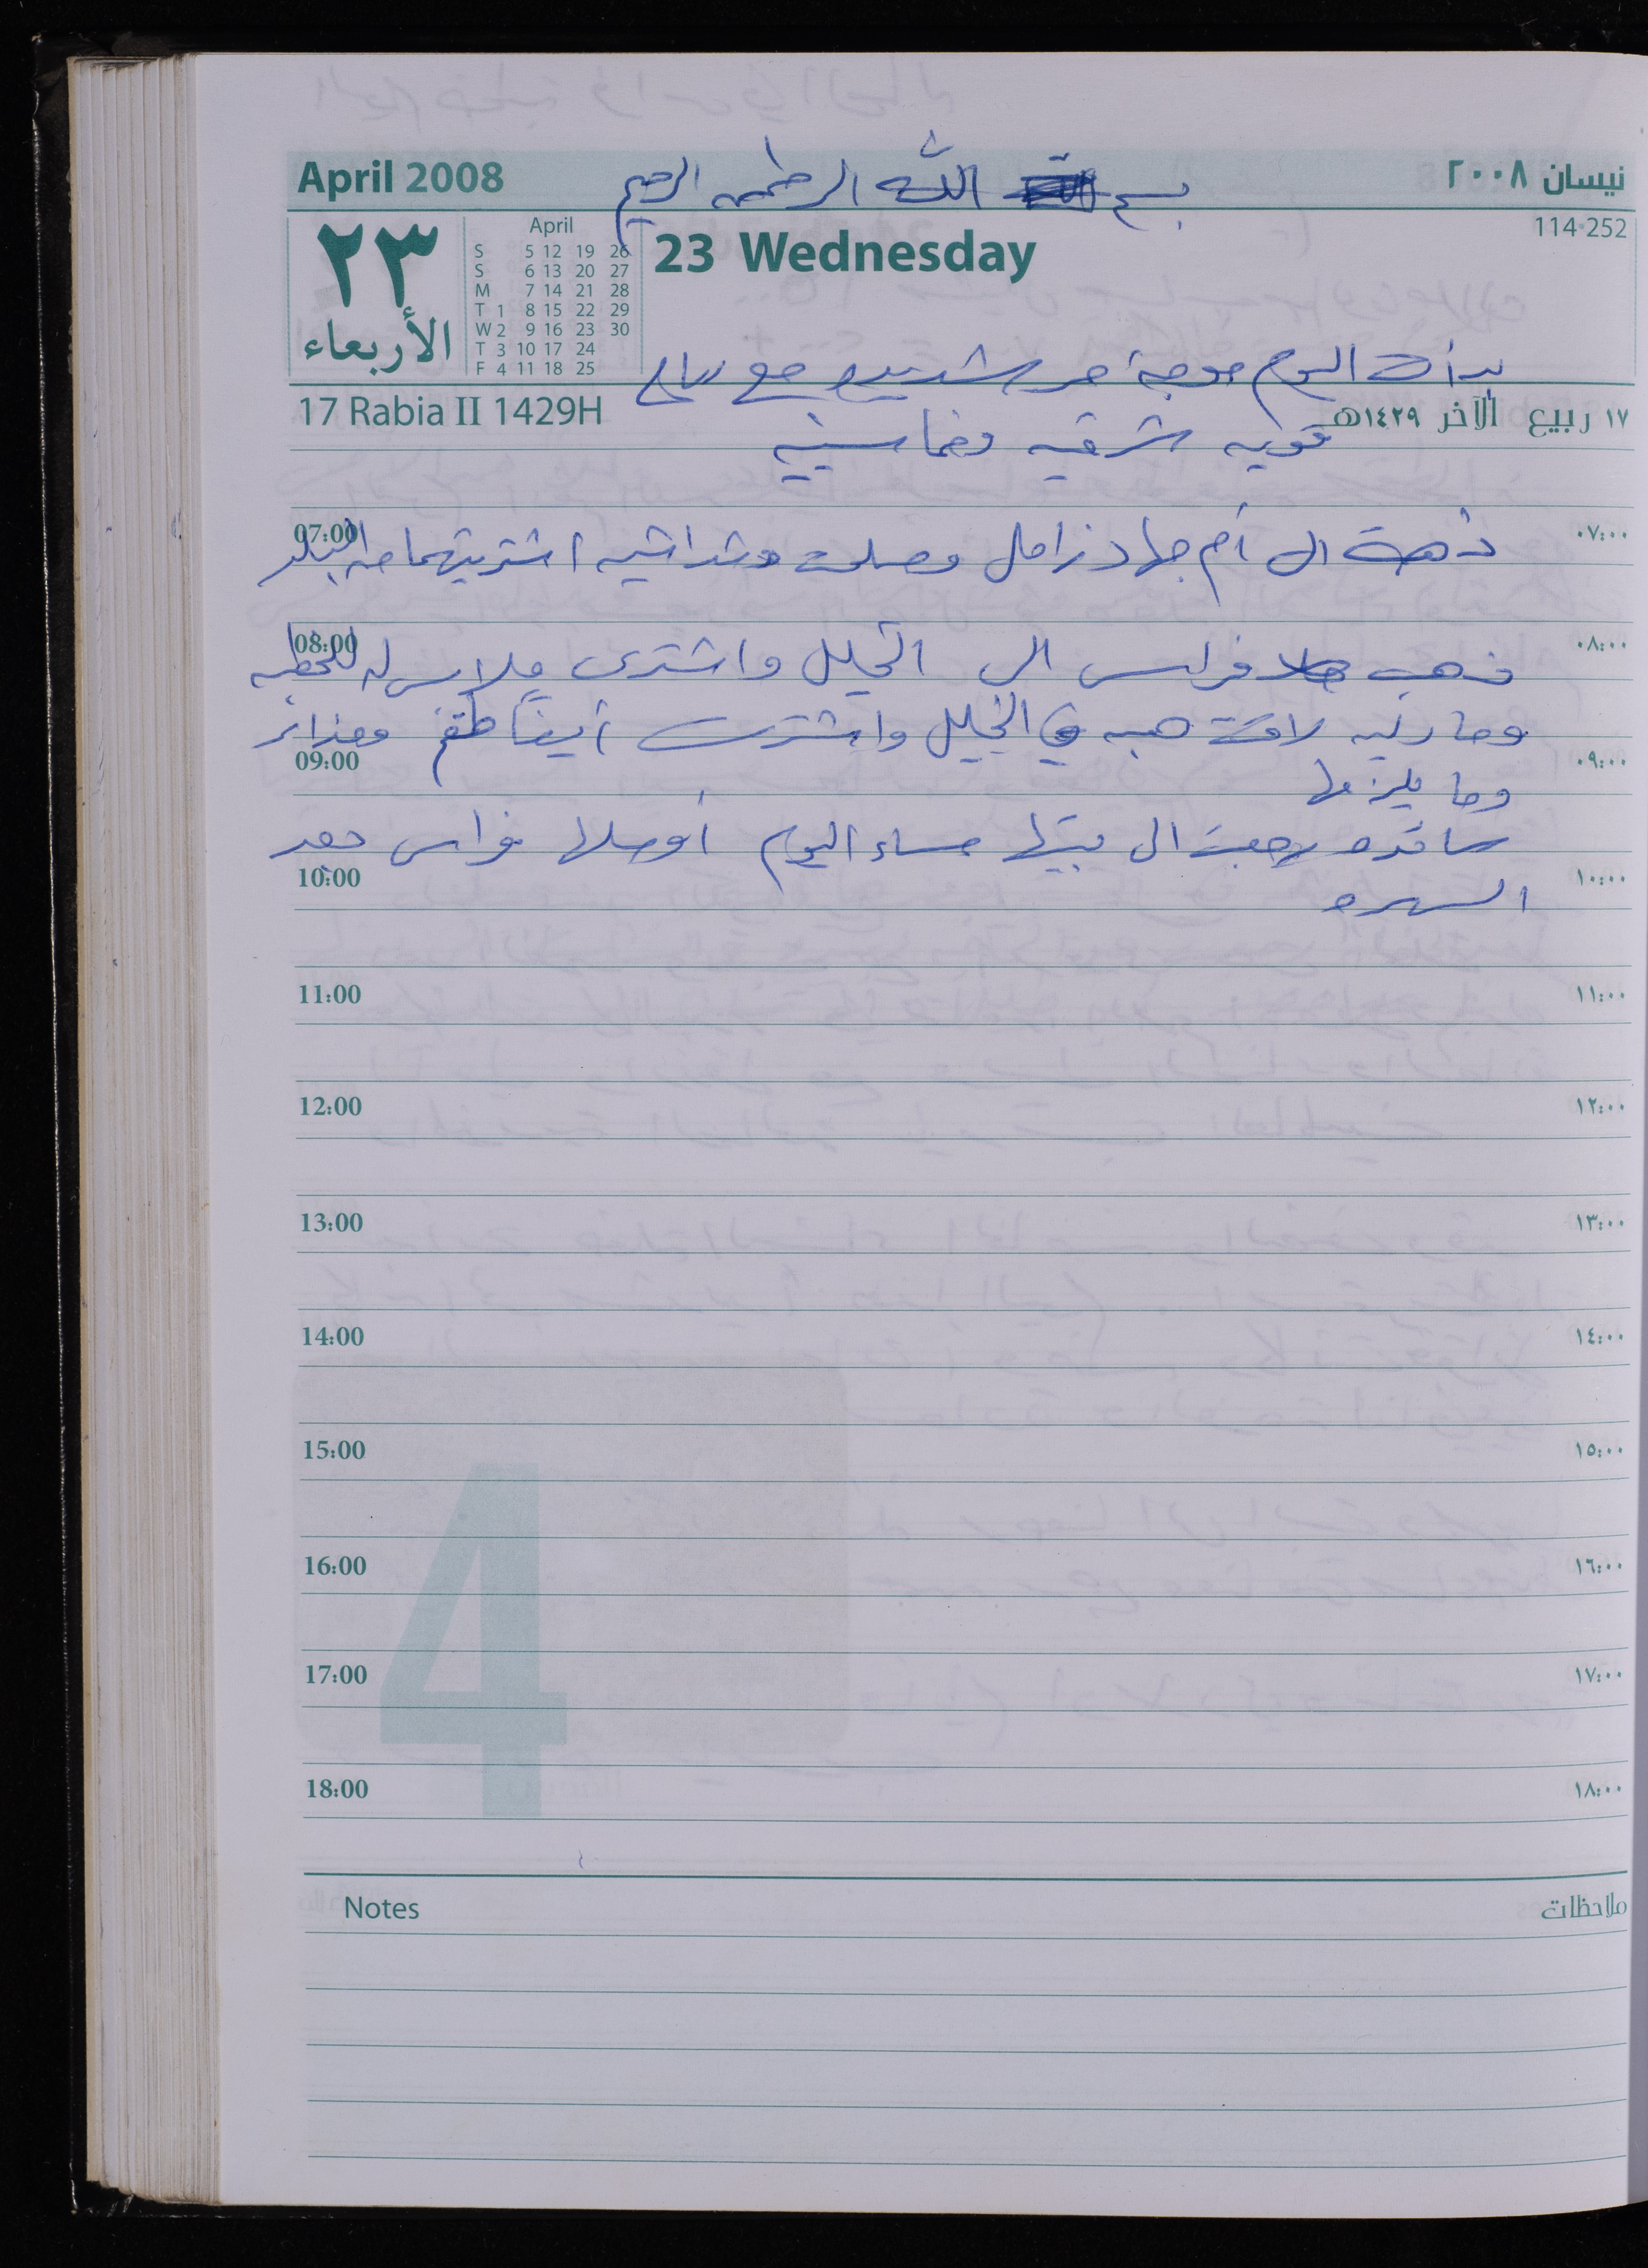 بسم الله الرحمن الرحيم
April 2008
نيسان ٢٠٠٨
٢٣
الأربعاء
April
S 5 12 19 26
S 6 13 20 27
M 7 14 21 28
T 1 8 15 22 29
W 2 9 16 23 30
T 3 10 17 24
F 4 11 18 25
23 Wednesday
114-252
بدأت اليوم موجة حر شديده مع رياح
17 Rabia II 1429H
١٧ ربيع الآخر ١٤٢٩هـ
قويه شرقيه وخماسينيه
07:00 ٠٧:٠٠
ذهبت الى أم جهاد زامل وصلت اشتريتهما من البلد
08:00 ٠٨:٠٠
ذهب فراس الى الخليل واشترى ملابس له للخطبه
وماريه لاقت هبه في الخليل واشترت أيضاً طقم وحذاء
09:00 ٠٩:٠٠
وما يلزمها
سانده رجعت الى بيتها مساء اليوم أوصلها فراس بعد
10:00 ١٠:٠٠
السهره
11:00 ١١:٠٠
12:00 ١٢:٠٠
13:00 ١٣:٠٠
14:00 ١٤:٠٠
15:00 ١٥:٠٠
16:00 ١٦:٠٠
17:00 ١٧:٠٠
18:00 ١٨:٠٠
4
Notes
ملاحظات